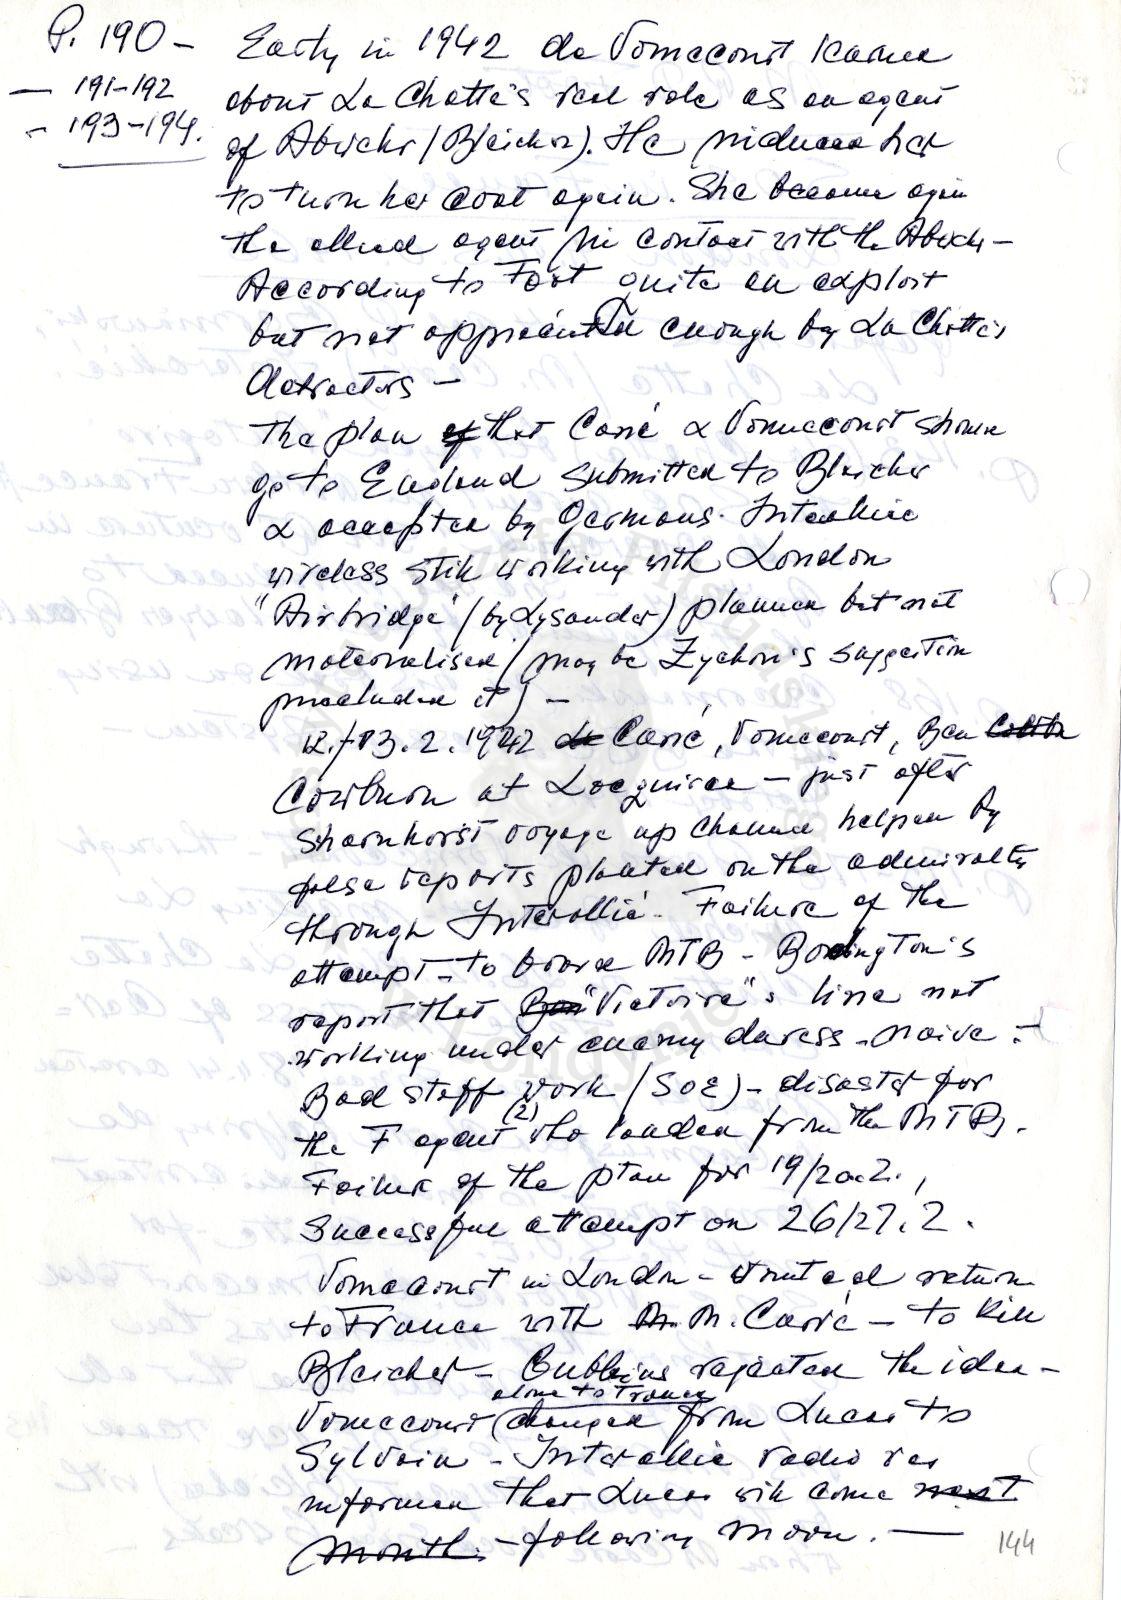 P. 190 - Early in 1942 de Vomecourt learned
— 191-192 about La Chatte's real role as an agent
- 193-194. of Abwehr (Bleicher). He induced her
to turn her coat again. She became again
the allied agent in contact with the Abwehr -
According to Foot quite an exploit
but not appreciated enough by La Chatte's
detractors -
The plan of that Carré & Vomecourt should
go to England submitted to Bleicher
& accepted by Germans. Interallié
wireless still working with London
"Airbridge" (by Lysander) planned but not
materialised (may be Zychon's suggestion
precluded it) -
12./13.2.1942 de Carré, Vomecourt, Ben
Cowburn at Locquirec - just after
Scharnhorst voyage up Channel helped by
false reports planted on the admiralty
through Interallié - Failure of the
attempt - to board MTB - Bodington's
report that "Victoire"s line not
working under enemy duress - naive -
Bad staff work (SOE) - disaster for
the F agent (2) who landed from the MTBs.
Failure of the plan for 19/20.2.,
Successful attempt on 26/27.2.
Vomecourt in London - wanted return
to France with M. M. Carré - to kill
Bleicher - Gubbins rejected the idea -
alone to France
Vomecourt (changed from Lucas to
Sylvain - Interallié radio was
informed that Lucas will come next
month - following moon. —
144